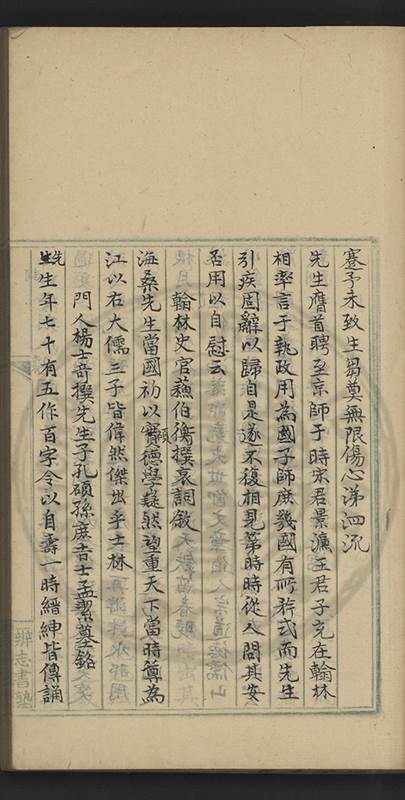 蹇予未致生芻奠無限傷心涕泗流
先生膺首聘至京師于時宋君景濂王君子充在翰林
相率言于執政用為國子師庶幾國有所矜式而先生
引疾固辭以歸自是遂不復相見第時時從人問其安
否用以自慰云
翰林史官蘇伯衡撰哀詞敘
海桑先生當國初以實德碩學巍然望重天下當時尊為
江以右大儒三子皆偉然傑出乎士林
門人楊士奇撰先生子孔碩孫庶吉士孟潔墓銘
先生生年七十有五作百字令以自壽一時縉紳皆傳誦
辨志書塾